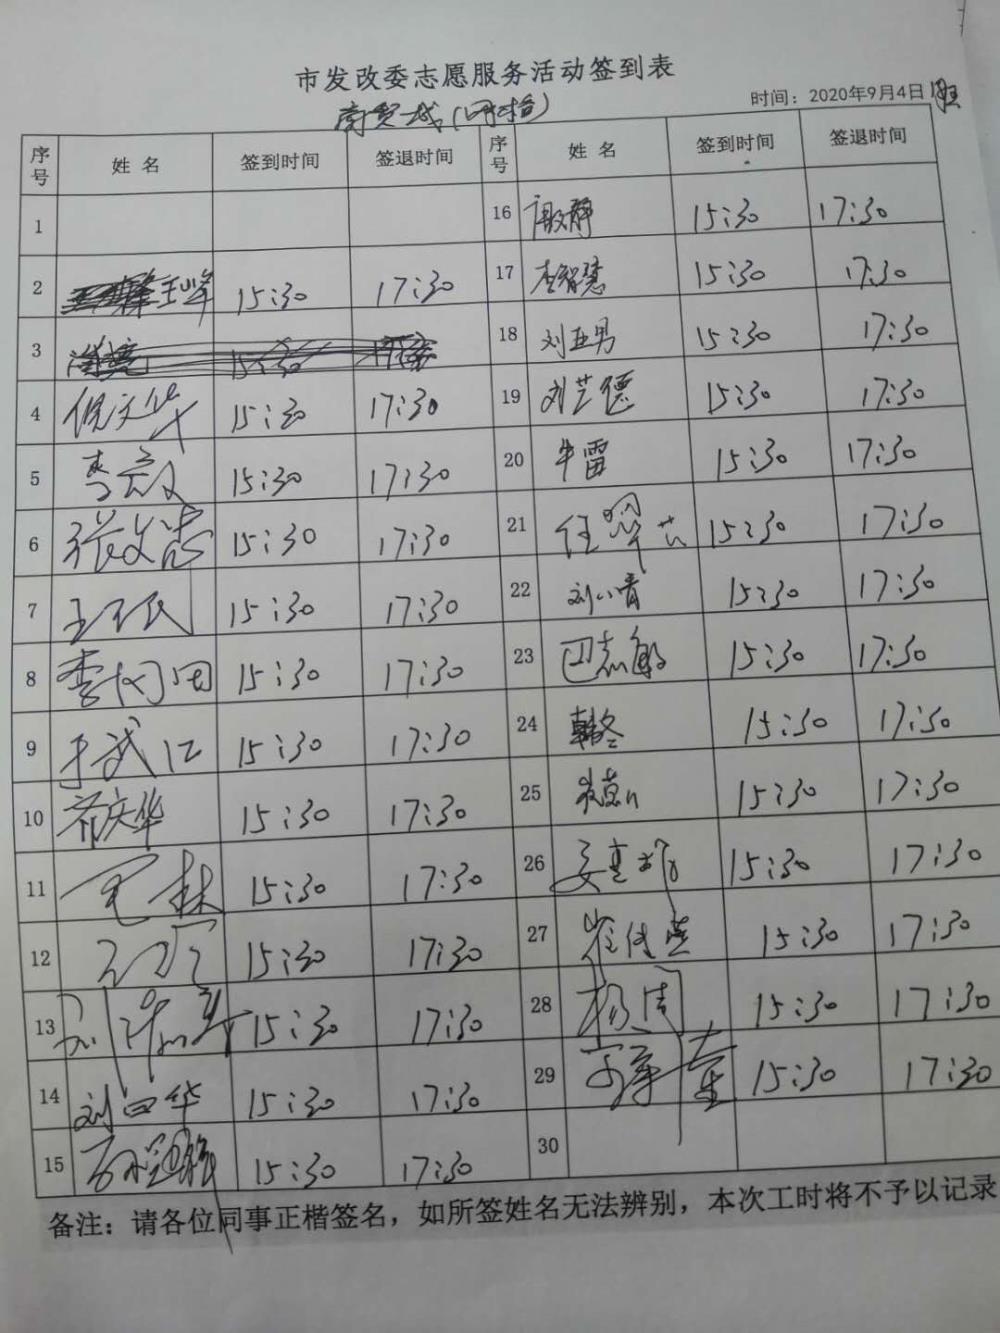 市发改委志愿服务活动签到表
商贸城
时间：2020年9月4日
序号 姓名 签到时间 签退时间 序号 姓名 签到时间 签退时间
1 16 15:30 17:30
2 15:30 17:30 17 李智慧 15:30 17:30
3 18 刘亚男 15:30 17:30
4 倪文华 15:30 17:30 19 刘芝德 15:30 17:30
5 15:30 17:30 20 牛雷 15:30 17:30
6 15:30 17:30 21 15:30 17:30
7 15:30 17:30 22 15:30 17:30
8 15:30 17:30 23 巴志敏 15:30 17:30
9 于武江 15:30 17:30 24 韩冬 15:30 17:30
10 齐庆华 15:30 17:30 25 15:30 17:30
11 15:30 17:30 26 15:30 17:30
12 15:30 17:30 27 15:30 17:30
13 15:30 17:30 28 杨周 15:30 17:30
14 15:30 17:30 29 15:30 17:30
15 15:30 17:30 30
备注：请各位同事正楷签名，如所签姓名无法辨别，本次工时将不予以记录